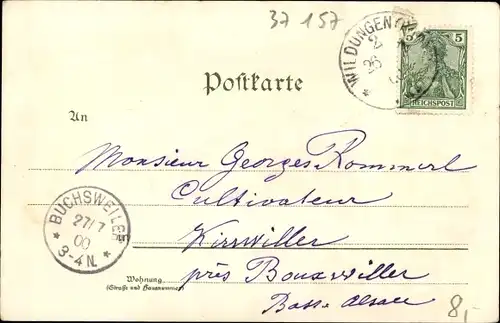 37 157
WILDUNGEN
5 5
REICHSPOST
Postkarte
An
Monsieur Georges Rommerl
Cultivateur
Kirrwiller
près Bouxwiller
Basse Alsace
BUCHSWEILER
27/7
00
3-4 N.
Wohnung
(Straße und Hausnummer)
8,-